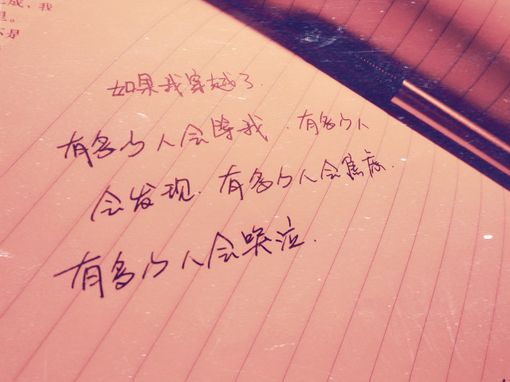 成，我
不是
如果我穿越了.
有多少人会等我.有多少人
会发现.有多少人会焦虑.
有多少人会哭泣.